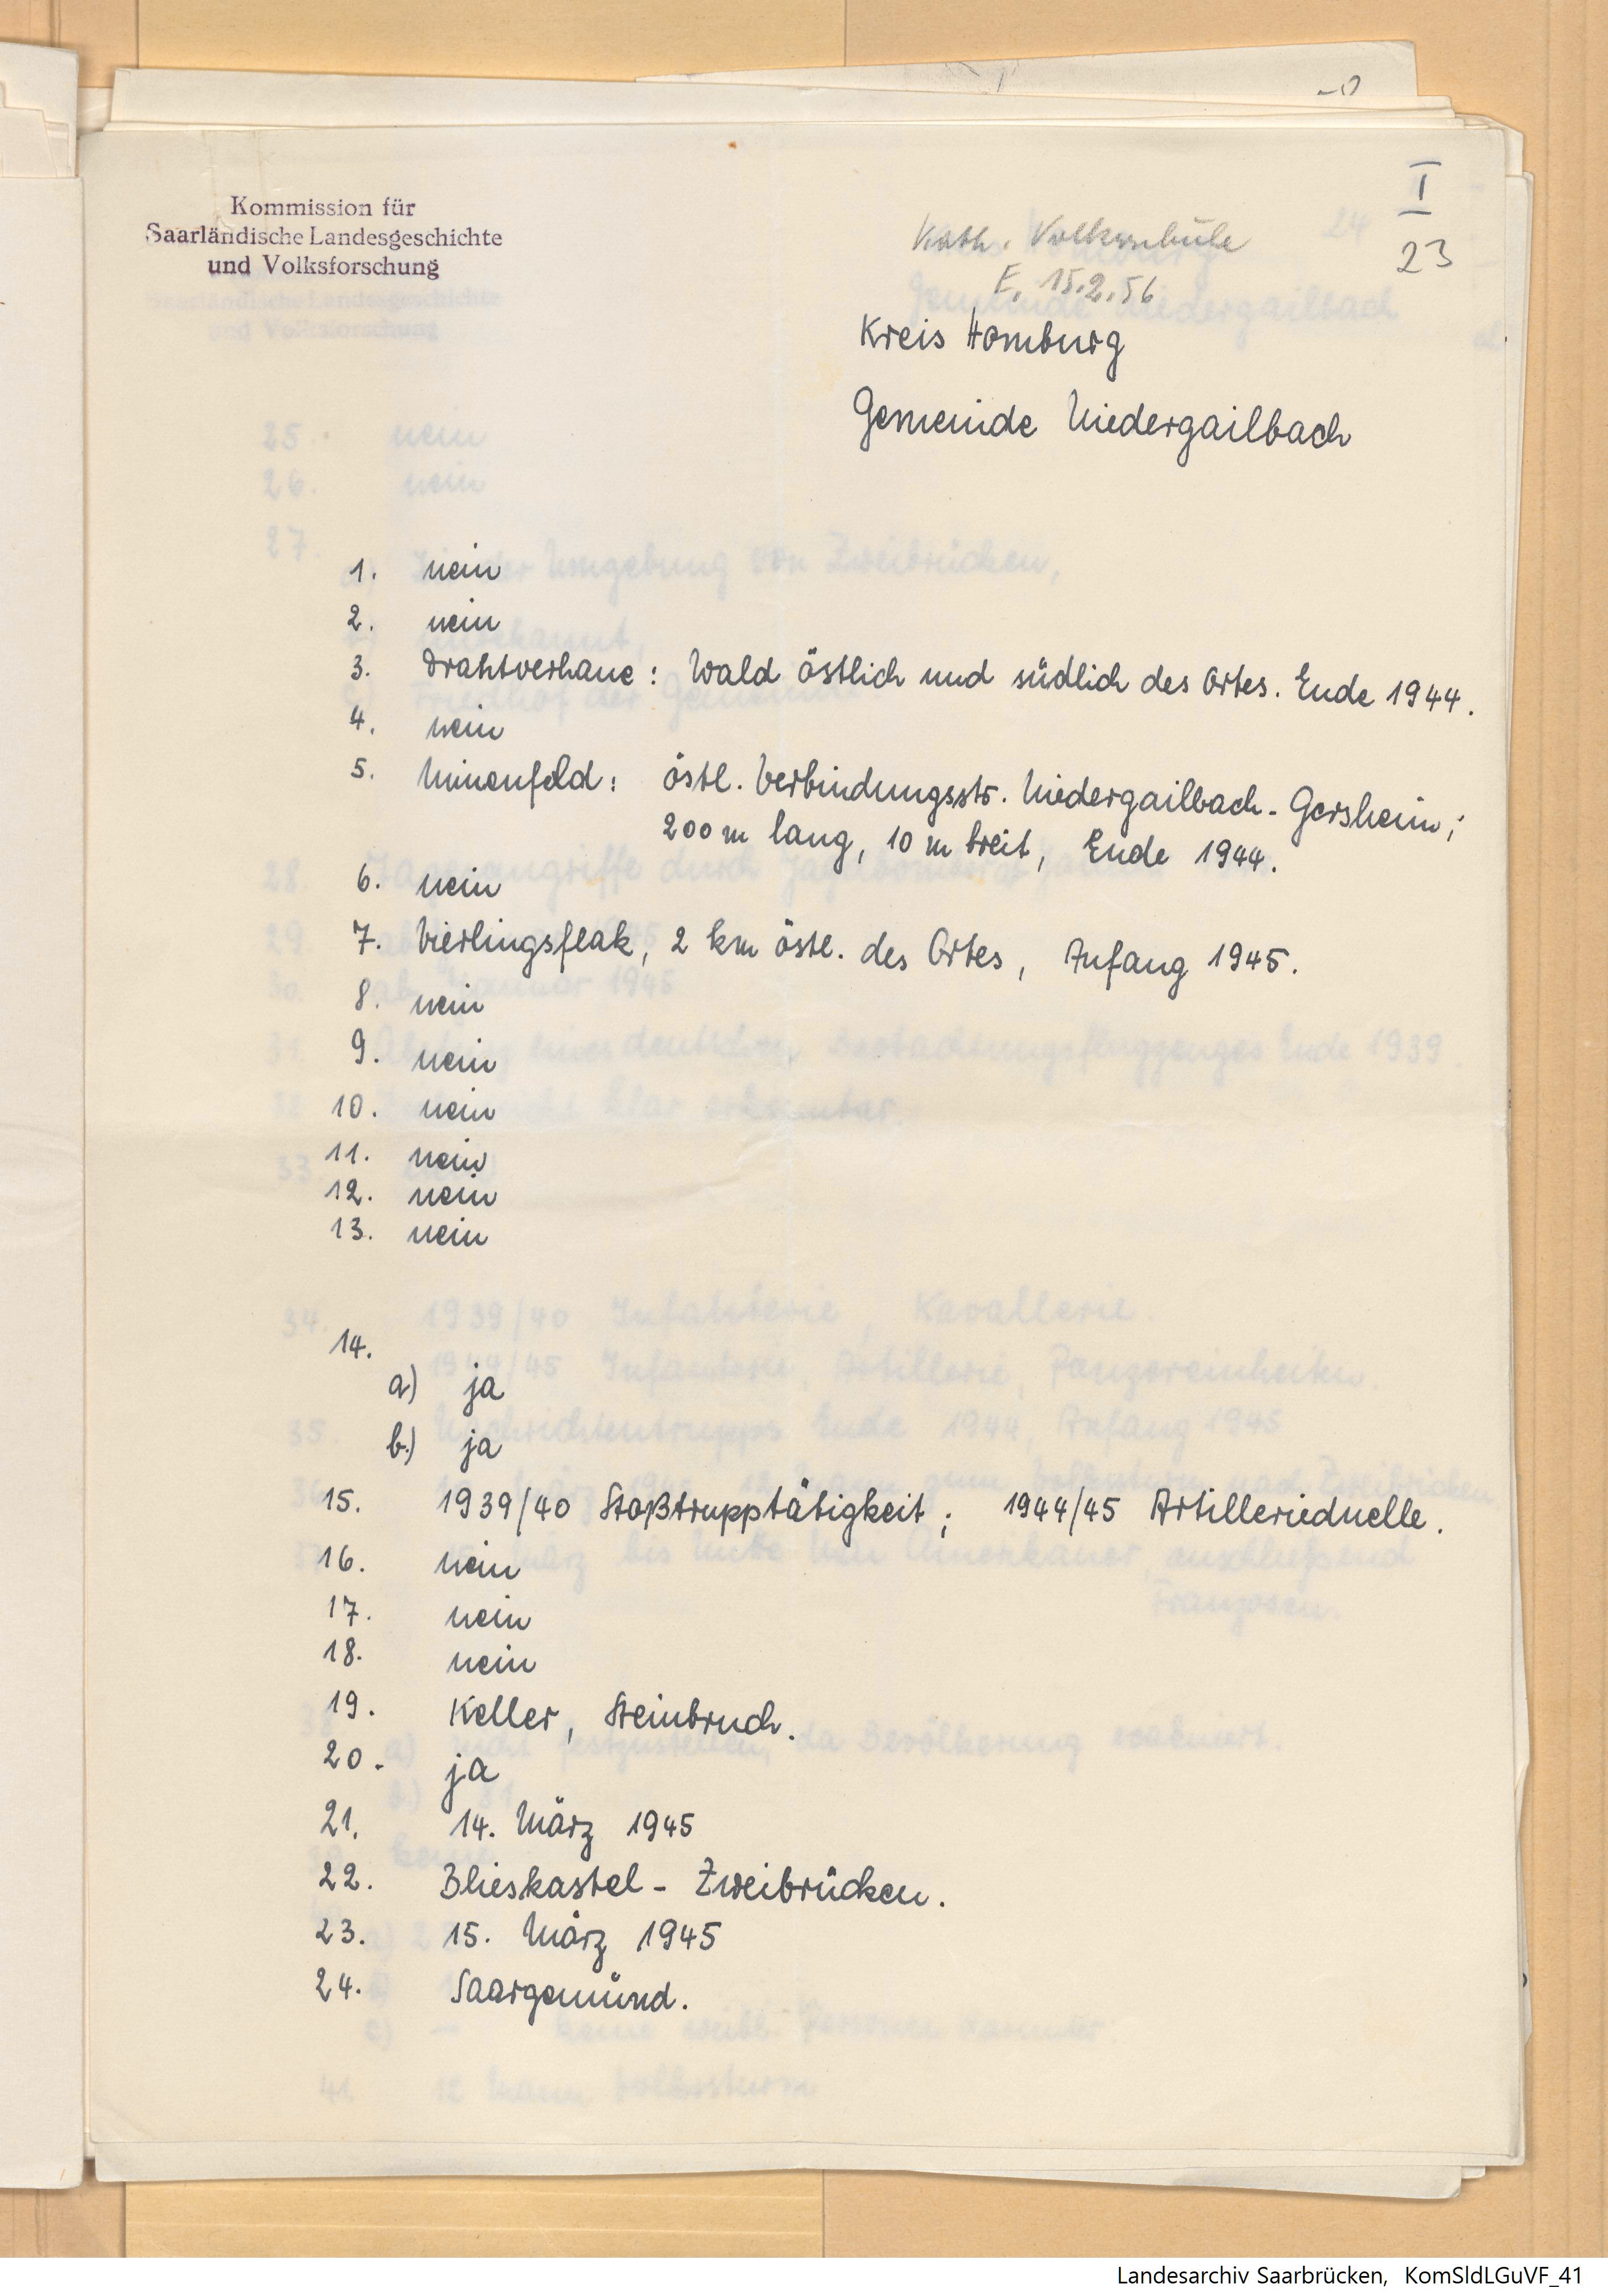 I
23
Kommission für
Saarländische Landesgeschichte
und Volksforschung
Kath. Volksschule
E. 15.2.56
Kreis Homburg
Gemeinde Niedergailbach
1. nein
2. nein
3. Drahtverhaue: Wald östlich und südlich des Ortes. Ende 1944.
4. nein
5. Minenfeld: östl. Verbindungsstr. Niedergailbach-Gersheim;
200 m lang, 10 m breit, Ende 1944.
6. nein
7. Vierlingsflak, 2 km östl. des Ortes, Anfang 1945.
8. nein
9. nein
10. nein
11. nein
12. nein
13. nein
14.
a) ja
b) ja
15. 1939/40 Stoßtrupptätigkeit; 1944/45 Artillerieduelle.
16. nein
17. nein
18. nein
19. Keller, Steinbruch.
20. ja
21. 14. März 1945
22. Blieskastel - Zweibrücken.
23. 15. März 1945
24. Saargemünd.
Landesarchiv Saarbrücken, KomSldLGuVF_41